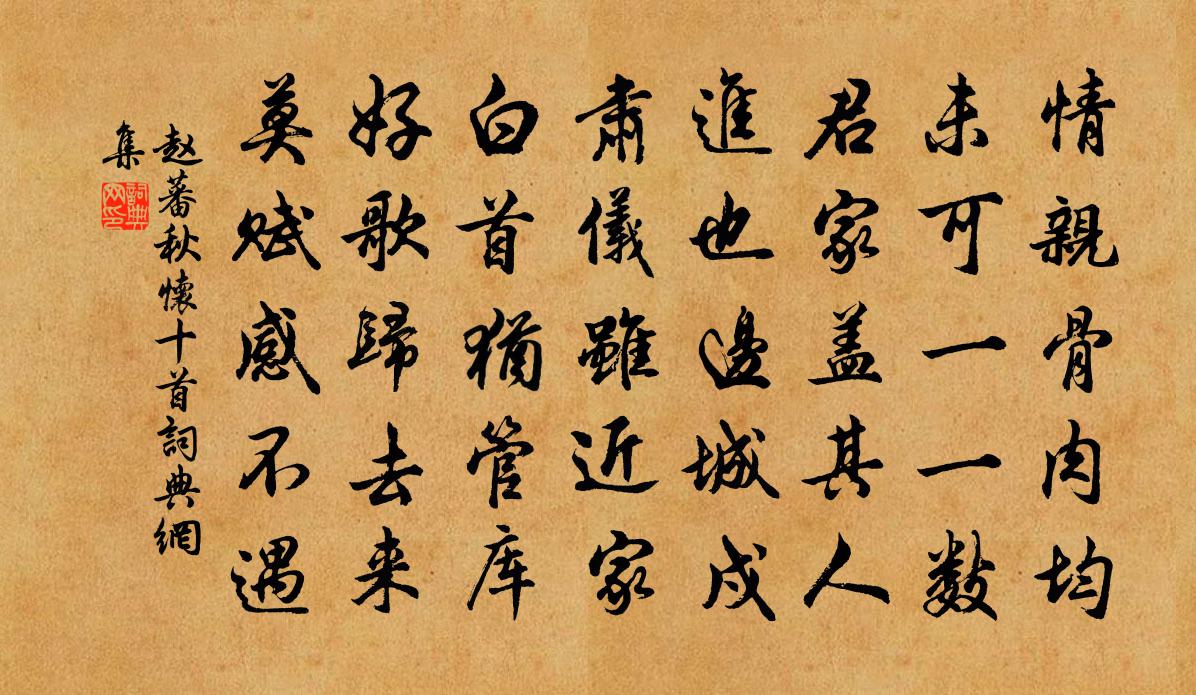 情親骨肉均
未可一一數
君家盖其人
進也邊城戍
肅儀雖近家
白首猶管库
好歌歸去来
莫賦感不遇
赵蕃秋懷十首詞典網
集
詞典
网印